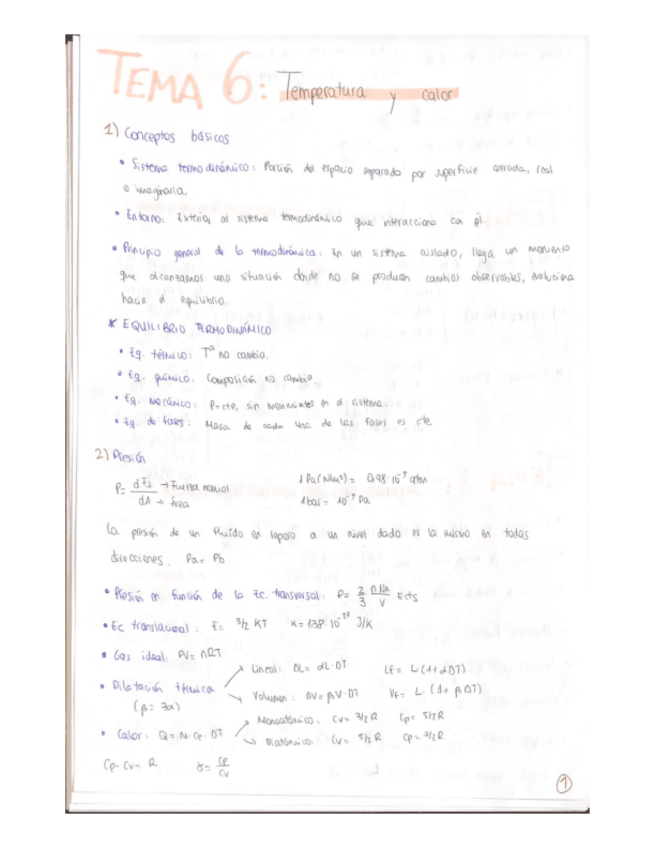 TEMA 6: Temperatura y calor
1) Conceptos básicos
• Sistema termodinámico: Porción del espacio separada por superficie cerrada, real
o imaginaria.
• Entorno: Exterior al sistema termodinámico que interacciona con él.
• Principio general de la termodinámica: En un sistema aislado, llega un momento
que alcanzamos una situación donde no se producen cambios observables, evoluciona
hacia el equilibrio.
* EQUILIBRIO TERMODINÁMICO
• Eq. térmico: Tª no cambia.
• Eq. químico: Composición no cambia.
• Eq. mecánico: P=cte, sin movimientos en el sistema.
• Eq. de fases: Masa de cada una de las fases es cte.
2) Presión
P= dF⊥ → Fuerza normal / dA → Área
1 Pa (N/m²) = 0,98·10⁻⁵ atm
1bar = 10⁻⁵ Pa
La presión de un fluido en reposo a un nivel dado es la misma en todas
direcciones. Pa= Pb
• Presión en función de la Ec. transversal: P= 2/3 nNa/V Ects
• Ec translacional: E= 3/2 KT K= 1'38·10⁻²³ J/K
• Gas ideal: PV= nRT
• Dilatación térmica
(β= 3α)
→ Lineal: DL= αL·DT LF= L(1+αDT)
→ Volumen: DV= βV·DT VF= L·(1+ βDT)
• Calor: Q= m·Ce·DT
→ Monoatómico: Cv= 3/2 R Cp= 5/2 R
→ Diatómico: Cv= 5/2 R Cp= 7/2 R
Cp-Cv= R γ= Cp/Cv
1